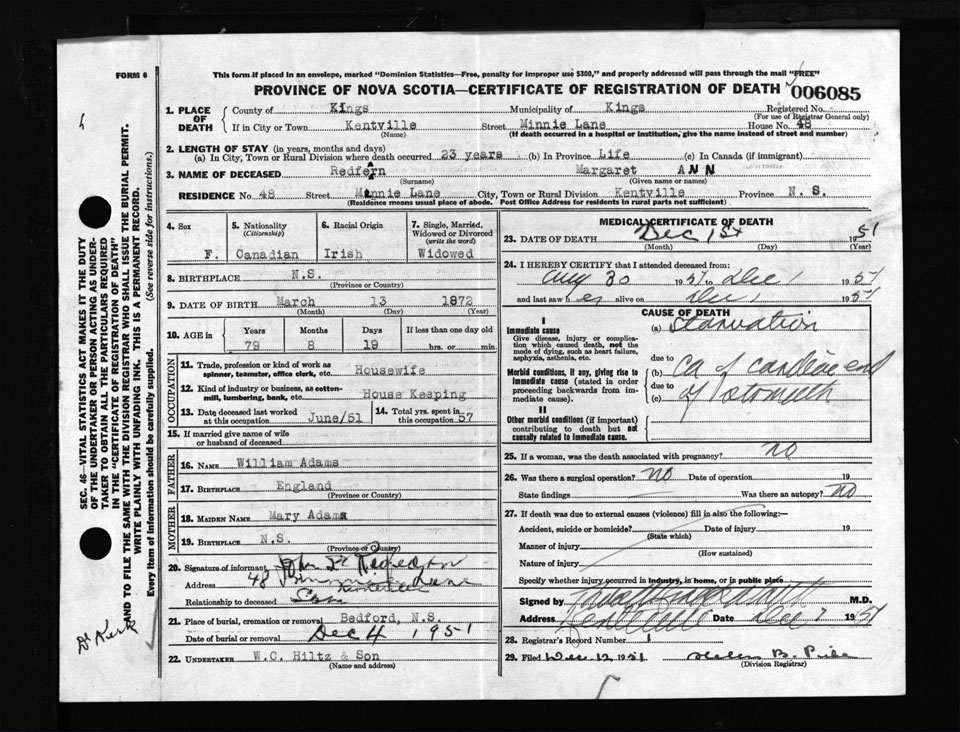 FORM 6
This form if placed in an envelope, marked "Dominion Statistics—Free, penalty for improper use $300," and properly addressed will pass through the mail "FREE"
PROVINCE OF NOVA SCOTIA—CERTIFICATE OF REGISTRATION OF DEATH 006085
1. PLACE OF DEATH County of Kings Municipality of Kings Registered No.
(For use of Registrar General only)
If in City or Town Kentville Street Minnie Lane House No. 48
(Name) (If death occurred in a hospital or institution, give the name instead of street and number)
2. LENGTH OF STAY (in years, months and days)
(a) In City, Town or Rural Division where death occurred 23 years (b) In Province Life (c) In Canada (if immigrant)
3. NAME OF DECEASED Redfern Margaret ANN
(Surname) (Given name or names)
RESIDENCE No. 48 Street Minnie Lane City, Town or Rural Division Kentville Province N. S.
(Residence means usual place of abode. Post Office Address for residents in rural parts not sufficient)
4. Sex F.
5. Nationality (Citizenship) Canadian
6. Racial Origin Irish
7. Single, Married, Widowed or Divorced (write the word) Widowed
8. BIRTHPLACE N.S.
(Province or Country)
9. DATE OF BIRTH March 13 1872
(Month) (Day) (Year)
10. AGE in Years Months Days If less than one day old
79 8 19 hrs. or min.
OCCUPATION
11. Trade, profession or kind of work as spinner, teamster, office clerk, etc. Housewife
12. Kind of industry or business, as cotton-mill, lumbering, bank, etc. House Keeping
13. Date deceased last worked at this occupation June/51
14. Total yrs. spent in this occupation 57
15. If married give name of wife or husband of deceased
FATHER
16. NAME William Adams
17. BIRTHPLACE England
(Province or Country)
MOTHER
18. MAIDEN NAME Mary Adams
19. BIRTHPLACE N.S.
(Province or Country)
20. Signature of informant John
Address 48 Minnie Lane
Kentville
Relationship to deceased Son
21. Place of burial, cremation or removal Bedford, N.S.
Date of burial or removal Dec 4 1951
22. UNDERTAKER W.C. Hiltz & Son
(Name and address)
MEDICAL CERTIFICATE OF DEATH
23. DATE OF DEATH Dec 1st 1951
(Month) (Day) (Year)
24. I HEREBY CERTIFY that I attended deceased from:
Aug 30 1951 to Dec 1 1951
and last saw her alive on Dec 1 1951
CAUSE OF DEATH
I
Immediate cause
Give disease, injury or complication which caused death, not the mode of dying, such as heart failure, asphyxia, asthenia, etc.
(a) Starvation
due to
Morbid conditions, if any, giving rise to immediate cause (stated in order proceeding backwards from immediate cause).
(b) Ca of cardiac end
due to
(c) of stomach
II
Other morbid conditions (if important) contributing to death but not causally related to immediate cause.
25. If a woman, was the death associated with pregnancy? no
26. Was there a surgical operation? No Date of operation 19
State findings Was there an autopsy? no
27. If death was due to external causes (violence) fill in also the following:—
Accident, suicide or homicide? Date of injury 19
(State which)
Manner of injury
(How sustained)
Nature of injury
Specify whether injury occurred in industry, in home, or in public place
Signed by M.D.
Address Kentville Date Dec 1 1951
28. Registrar's Record Number
29. Filed Dec. 12 1951 Helen B.
(Division Registrar)
SEC. 46—VITAL STATISTICS ACT MAKES IT THE DUTY
OF THE UNDERTAKER OR PERSON ACTING AS UNDER-
TAKER TO OBTAIN ALL THE PARTICULARS REQUIRED
IN THE "CERTIFICATE OF REGISTRATION OF DEATH"
AND TO FILE THE SAME WITH THE DIVISION REGISTRAR WHO SHALL ISSUE THE BURIAL PERMIT.
WRITE PLAINLY WITH UNFADING INK. THIS IS A PERMANENT RECORD.
Every item of information should be carefully supplied. (See reverse side for instructions.)
Dr Kirk